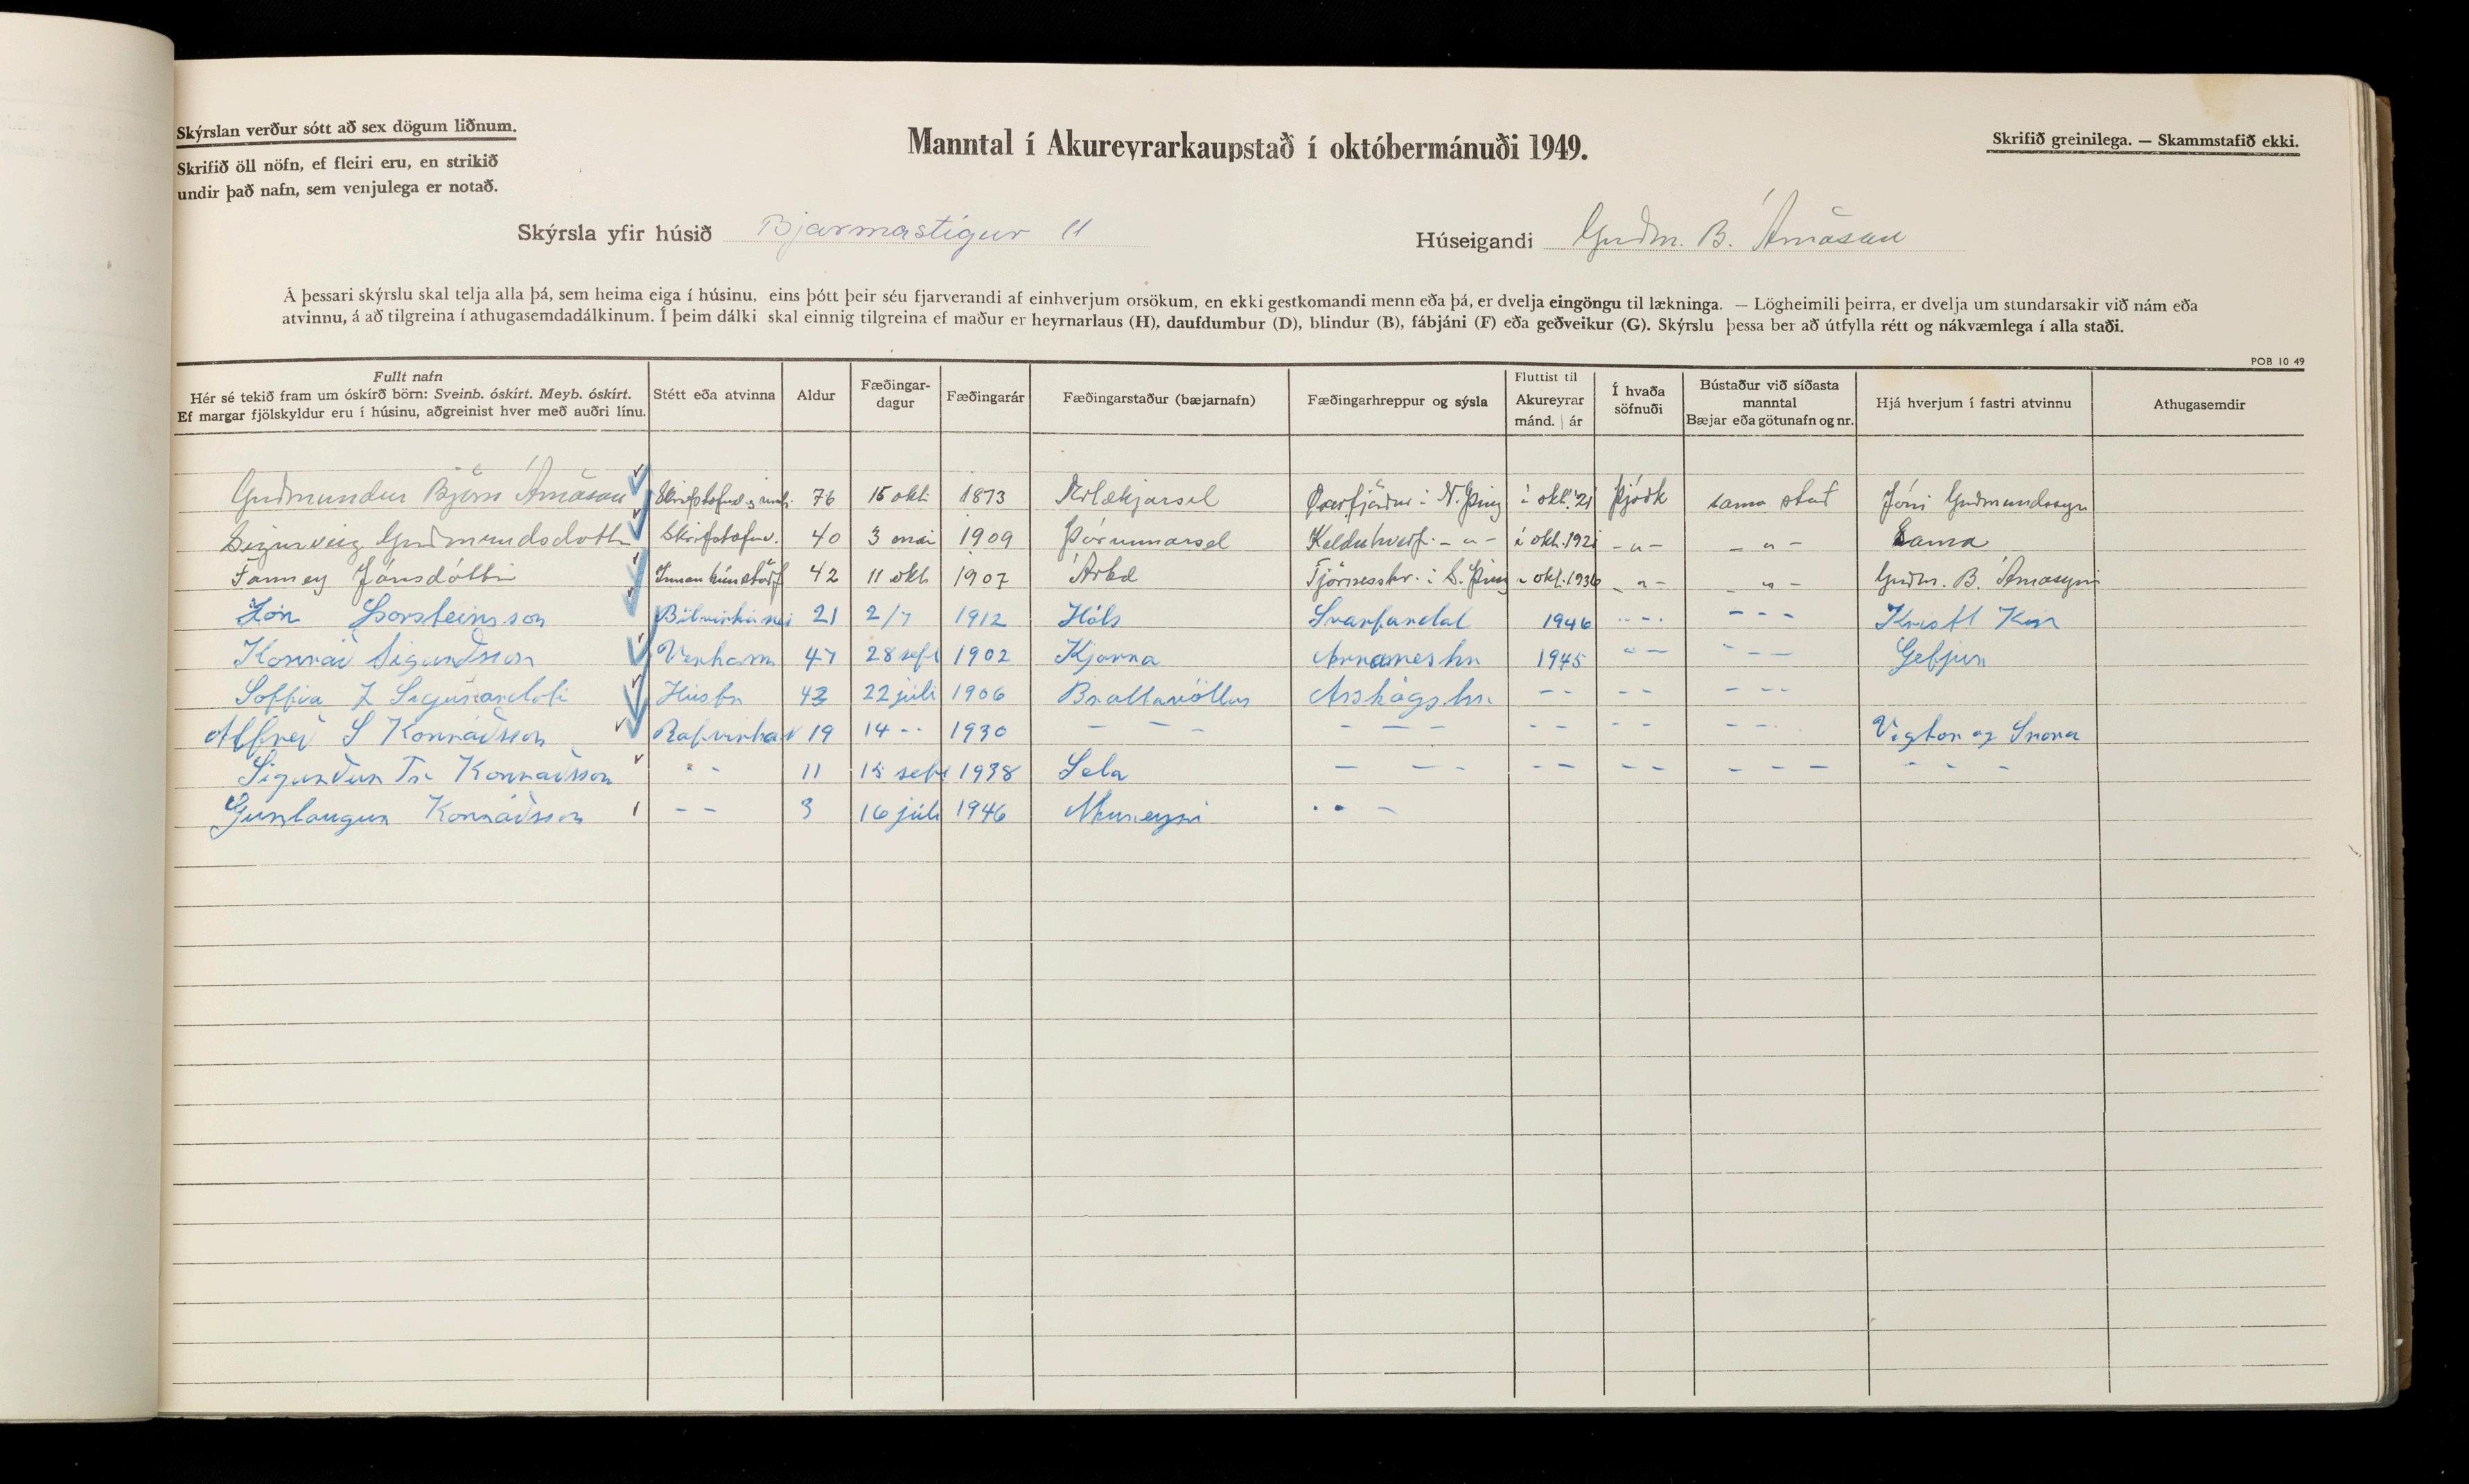 Skýrslan verður sótt að sex dögum liðnum.
Skrifið öll nöfn, ef fleiri eru, en strikið
undir það nafn, sem venjulega er notað.
Manntal í Akureyrarkaupstað í októbermánuði 1949.
Skrifið greinilega. — Skammstafið ekki.
Skýrsla yfir húsið Bjarmastígur 11
Húseigandi Guðm. B. Árnason
Á þessari skýrslu skal telja alla þá, sem heima eiga í húsinu, eins þótt þeir séu fjarverandi af einhverjum orsökum, en ekki gestkomandi menn eða þá, er dvelja eingöngu til lækninga. — Lögheimili þeirra, er dvelja um stundarsakir við nám eða
atvinnu, á að tilgreina í athugasemdadálkinum. Í þeim dálki skal einnig tilgreina ef maður er heyrnarlaus (H), daufdumbur (D), blindur (B), fábjáni (F) eða geðveikur (G). Skýrslu þessa ber að útfylla rétt og nákvæmlega í alla staði.
POB 10 49
Fullt nafn
Hér sé tekið fram um óskírð börn: Sveinb. óskírt. Meyb. óskírt.
Ef margar fjölskyldur eru í húsinu, aðgreinist hver með auðri línu.
Stétt eða atvinna
Aldur
Fæðingar-
dagur
Fæðingarár
Fæðingarstaður (bæjarnafn)
Fæðingarhreppur og sýsla
Fluttist til
Akureyrar
mánd. | ár
Í hvaða
söfnuði
Bústaður við síðasta
manntal
Bæjar eða götunafn og nr.
Hjá hverjum í fastri atvinnu
Athugasemdir
Guðmundur Björn Árnason 76 15 okt. 1873 Öxarfjörður í N. Þing í okt. '21 Þjóðk sama stað Jóni Guðmundssyni
Sigurveig Guðmundsdóttir Skrifstofust. 40 3 maí 1909 Þórunnarsel Kelduhverfi - " - í okt. 1921 - " - - " - Sama
Fanney Jónsdóttir Innanhússtörf 42 11 okt 1907 Tjörneshr. í S. Þing okt. 1936 - " - - " - Guðm. B. Árnasyni
Jón Þorsteinsson 21 2/7 1912 Hóls Svarfardal 1946 - - - - - - Kristl Kin
Konráð Sigurðsson Verkam 47 28 sept 1902 Kjarna Arnarneshr 1945 " - - - - Gefjun
Soffia Z Sigurðardoti Húsfr 43 22 júli 1906 Brattavöllur Arskógshr. - - - - - - -
Alfreð S Konráðsson Rafvirkja 19 14 - - 1930 - - - - - - - - - - - - -
Sigurður Tr Konráðsson - - 11 15 sept 1938 Sela - - - - - - - - - - - - -
Gunnlaugur Konráðsson - - 3 16 júlí 1946 Akureyri - - -